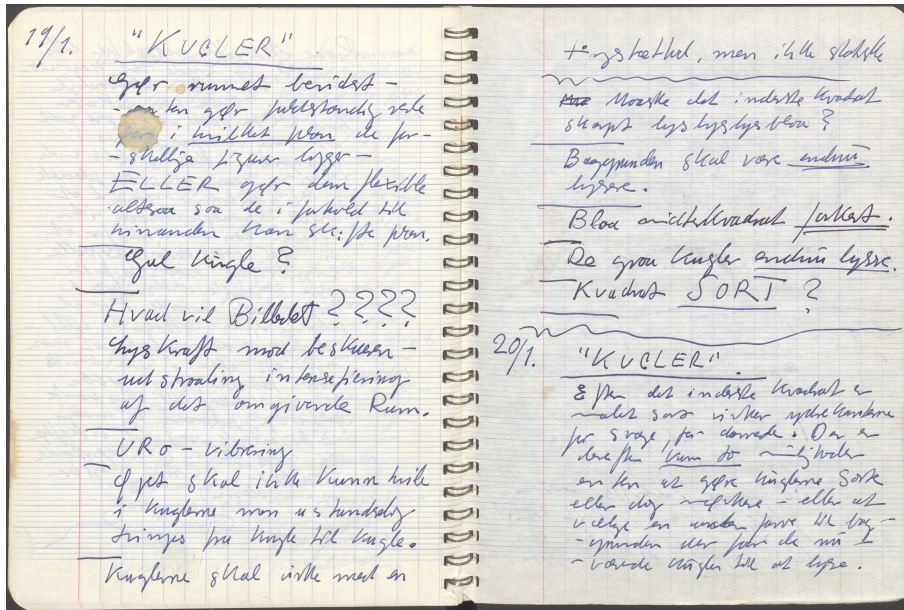 19/1. "KUGLER"
Gør rummet beridst -
- enten gør fuldstændig rede
for i hvilket plan de for-
- skellige figurer ligger -
ELLER gør dem flexible
altsaa saa de i forhold til
hinanden kan skifte plan.
Gul Kugle?
Hvad vil Billedet????
Lyskraft mod beskueren -
udstraaling intensifiering
af det omgivende Rum.
URO - vibrering
Øjet skal ikke kunne hvile
i Kuglerne men ustandselig
tvinges fra Kugle til Kugle.
Kuglerne skal virke med en
tyngsthed, men ikke statiske
Maaske det inderste Kvadrat
skarpt lyslyslysblaa?
Baggrunden skal være endnu
lysere.
Blaa midterkvadrat forkert.
De graa Kugler endnu lysere.
Kvadrat SORT?
20/1. "KUGLER".
Efter det inderste Kvadrat er
malet sort virker ydre kanterne
for svage, for Der er
derefter kun to muligheder
enten at gøre Kuglerne Sorte
eller dog mørkere - eller at
vælge en anden farve til bag-
- grunden der faar de nu
- værende Kugler til at lyse.